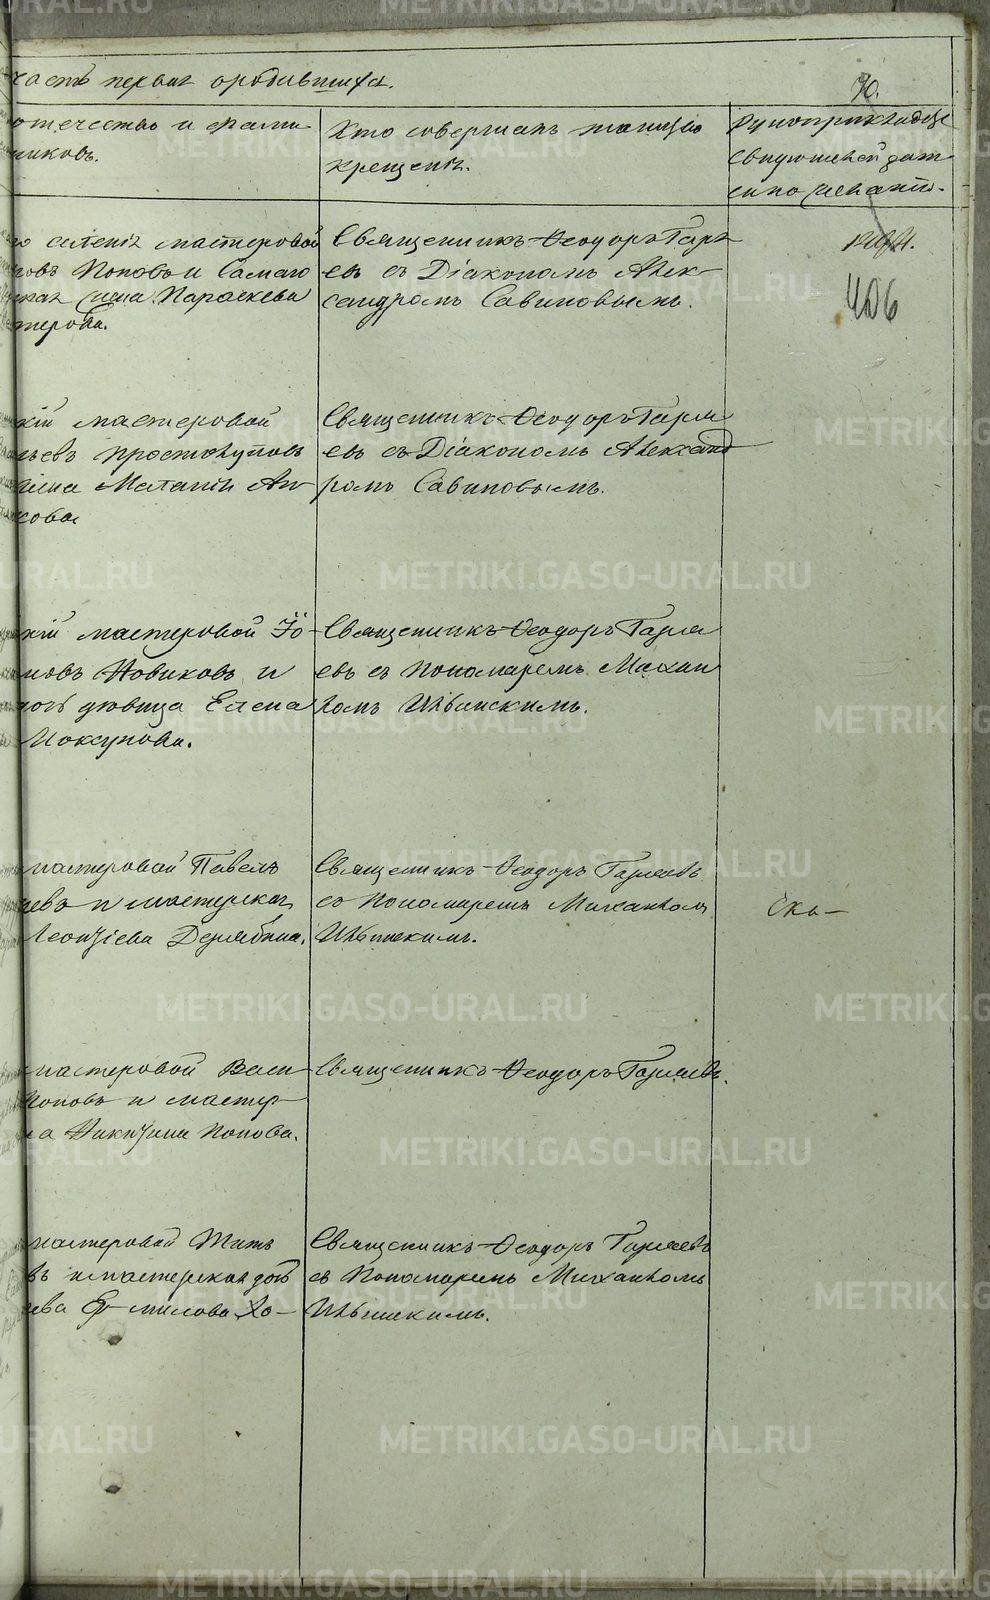 часть первая о родившихся.
70.
отечество и фами-
никовъ.
Кто совершалъ таинство
крещенія.
Рукоприкладство
свидѣтелей
по желанію.
селенія мастеровой
Поповъ и самаго
Параскева
Священникъ Ѳеодоръ Гаря-
евъ съ Діакономъ Алек-
сандромъ Савиновымъ.
406
кій мастеровой
ьевъ Простокуповъ
Меланія
кова
Священникъ Ѳеодоръ Гаряе
евъ съ Діакономъ Александ
ромъ Савиновымъ.
кій мастеровой Іо-
новъ Новиковъ и
дѣвица Елена
Мокеунова.
Священникъ Ѳеодоръ Гаряе
евъ съ Пономаремъ Михаи
ломъ Ильинскимъ.
мастеровой Павелъ
евъ и мастерская
Леонтіева Дерябина.
Священникъ Ѳеодоръ Гаряевъ
съ Пономаремъ Михаиломъ
Ильинскимъ.
мастеровой Васи
Поповъ и мастер-
на Никитина Попова.
Священникъ Ѳеодоръ Гаряевъ.
мастеровой Титъ
въ и мастерская дочь
ева Ермилова Хо-
Священникъ Ѳеодоръ Гаряевъ
съ Пономаремъ Михаиломъ
Ильинскимъ.
METRIKI.GASO-URAL.RU